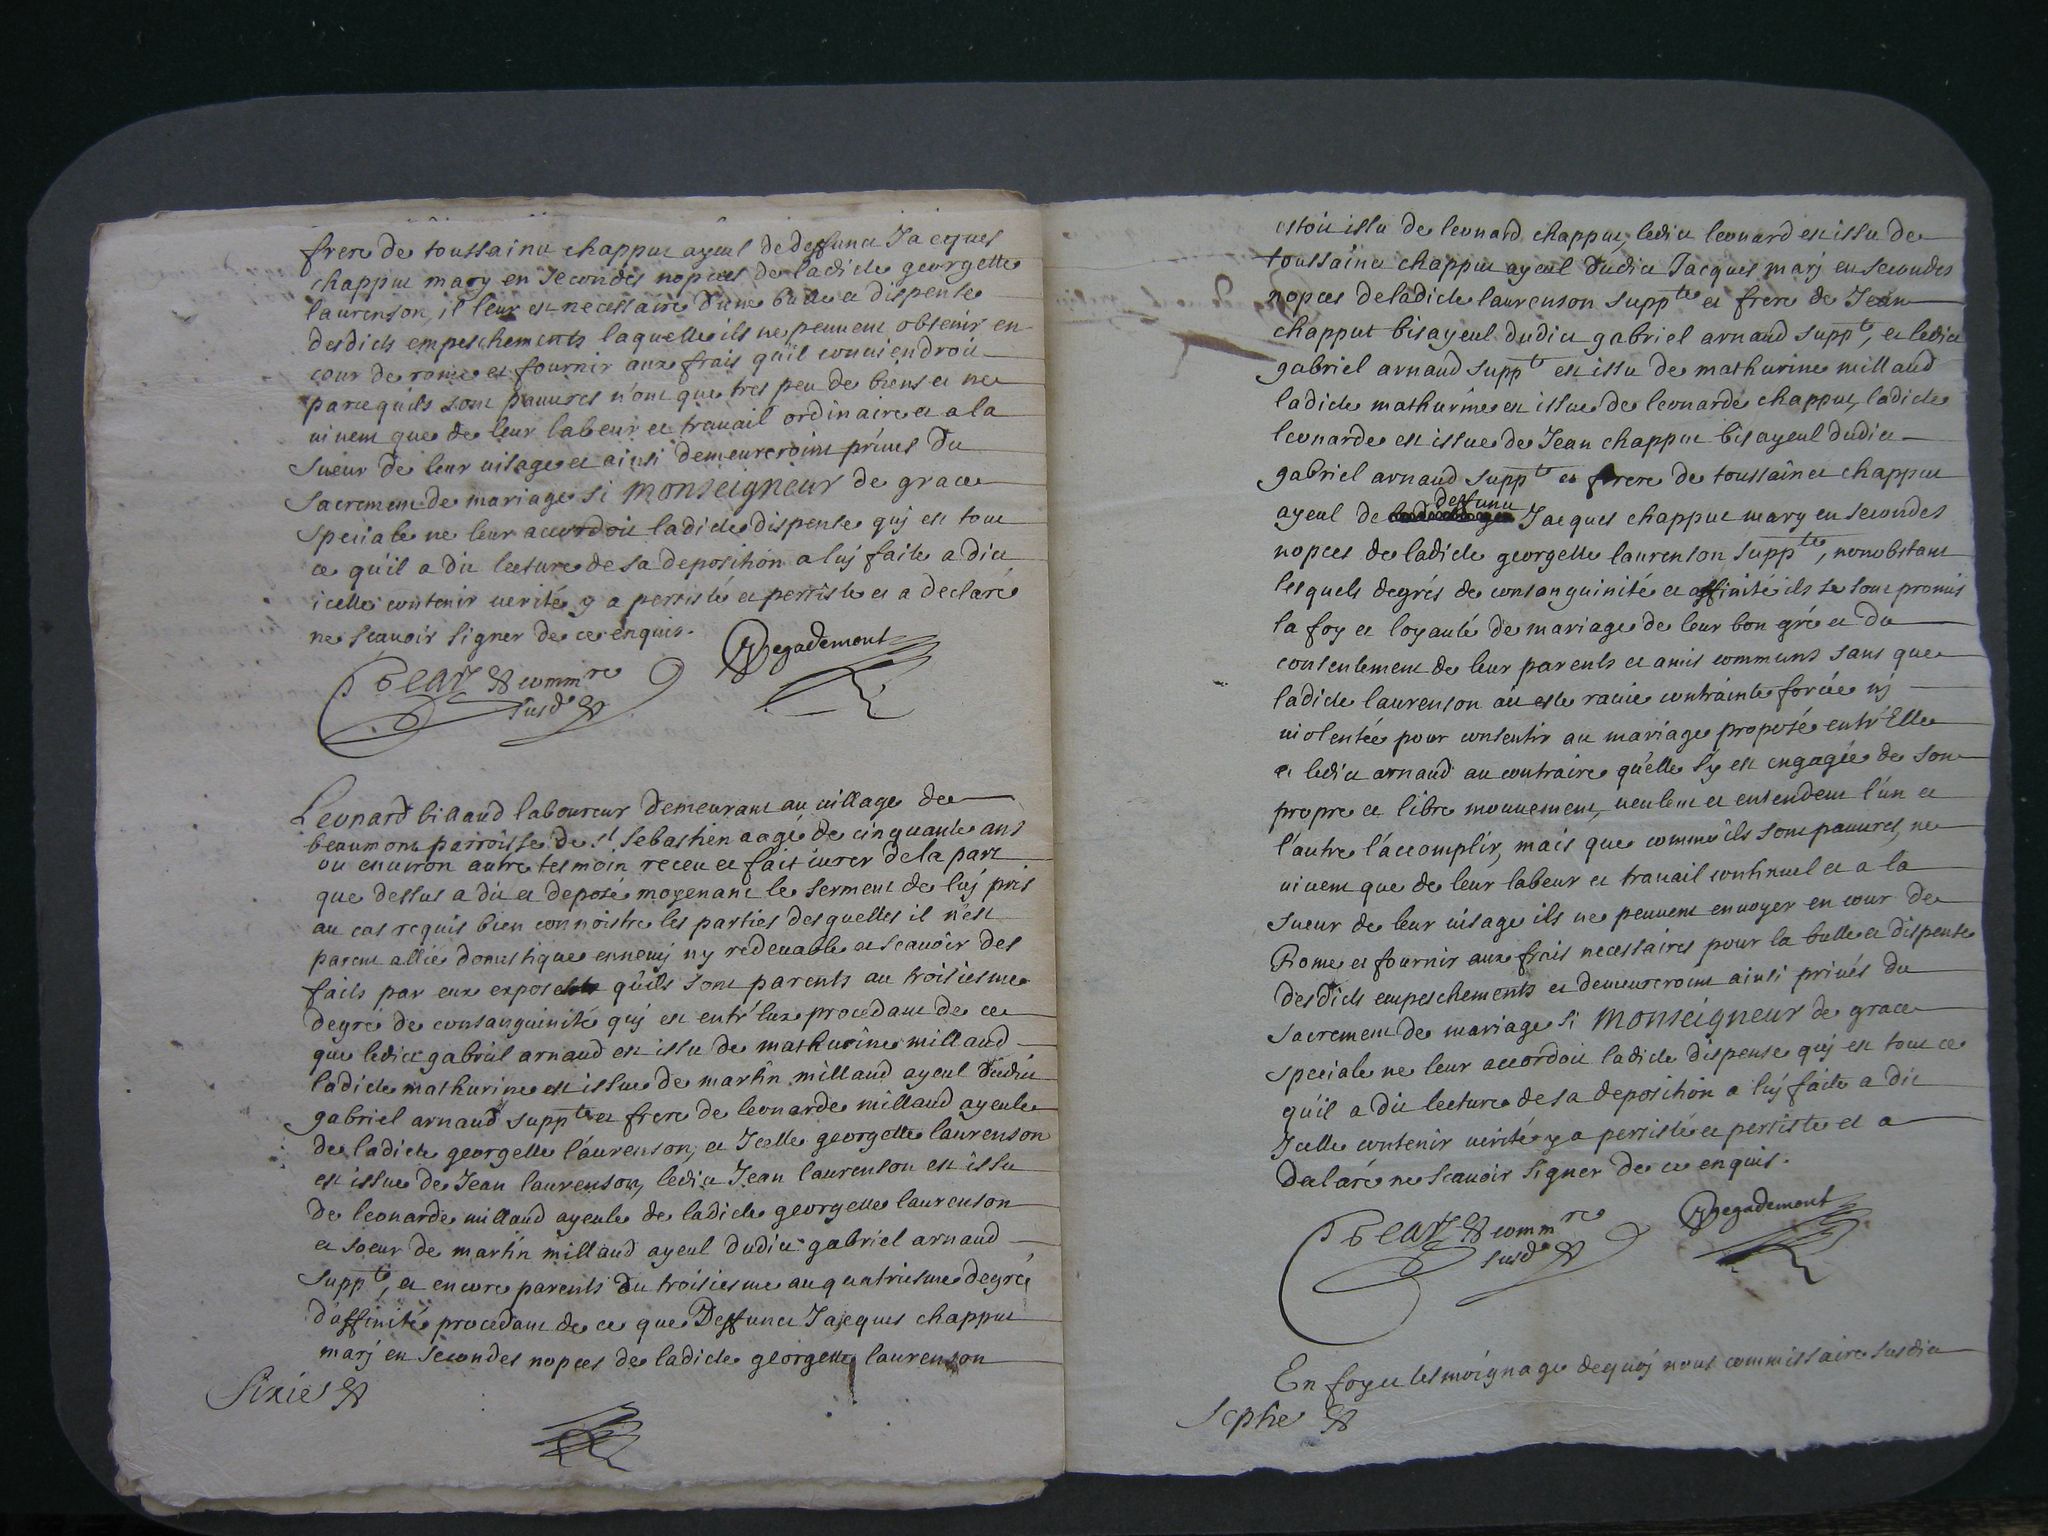 frere de toussainct chapput ayeul de deffunct Jacques
chapput mary en secondes nopces de ladicte georgette
laurenson, il leur est necessaire d'une bulle et dispense
desdicts empeschements laquelle ils ne peuvent obtenir en
cour de rome et fournir aux frais qu'il conviendroit
parcequ'ils sont pauvres n'ont que tres peu de biens et ne
vivent que de leur labeur et travail ordinaire et a la
sueur de leur visage et ainsi demeureroint privés du
sacrement de mariage si MONSEIGNEUR de grace
speciale ne leur accordoit ladicte dispense quj est tout
ce qu'il a dit lecture de sa deposition a luj faite a dict
icelle contenir verité y a persisté et persiste et a declaré
ne scavoir signer de ce enquis.
commre susd
Degademont
Leonard billaud laboureur demeurant au village de
beaumont parroisse de st Sebastien aagé de cinquante ans
ou environ autre tesmoin receu et fait jurer de la part
que dessus a dit et deposé moyenant le serment de luj pris
au cas requis bien connoistre les parties desquelles il n'est
parent allié domestique ennemj ny redevable et scavoir des
faits par eux exposés qu'ils sont parents au troisiesme
degré de consanguinité quj est entr'eux procedant de ce
que ledict gabriel arnaud est issu de mathurine millaud
ladicte mathurine est issue de martin millaud ayeul dudict
gabriel arnaud suppt et frere de leonarde millaud ayeule
de ladicte georgette laurenson, et Icelle georgette laurenson
est issue de Jean laurenson, ledict Jean laurenson est issu
de leonarde millaud ayeule de ladicte georgette laurenson
et soeur de martin millaud ayeul dudict gabriel arnaud
suppt, et encore parents du troisiesme au quatriesme degré
d'affinité procedant de ce que Deffunct Jacques chapput
marj en secondes nopces de ladicte georgette laurenson
Sixie
estoit issu de leonard chapput, ledict leonard est issu de
toussainct chapput ayeul dudict Jacques marj en secondes
nopces de ladicte laurenson suppte et frere de Jean
chapput bisayeul dudict gabriel arnaud suppt, et ledict
gabriel arnaud suppt est issu de mathurine millaud
ladicte mathurine est issue de leonarde chapput, ladicte
leonarde est issue de Jean chapput bisayeul dudict
gabriel arnaud suppt et frere de toussainct chapput
ayeul de deffunct Jacques chapput mary en secondes
nopces de ladicte georgette laurenson suppte, nonobstant
lesquels degrés de consanguinité et affinité ils se sont promis
la foy et loyauté de mariage de leur bon gré et du
consentement de leur parents et amis communs sans que
ladicte laurenson ait esté ravie contrainte forcée nj
violentée pour consentir au mariage proposé entr'Elle
et ledict arnaud au contraire qu'elle s'y est engagée de son
propre et libre mouvement, veulent et entendent l'un et
l'autre l'accomplir, mais que comme ils sont pauvres, ne
vivent que de leur labeur et travail continuel et a la
sueur de leur visage ils ne peuvent envoyer en cour de
Rome et fournir aux frais necessaires pour la bulle et dispense
desdicts empeschements et demeureroint ainsi privés du
sacrement de mariage si MONSEIGNEUR de grace
speciale ne leur accordoit ladicte dispense quj est tout ce
qu'il a dit lecture de sa deposition a luj faite a dit
Icelle contenir verité y a persisté et persiste et a
declaré ne scavoir signer de ce enquis.
commre susd
Degademont
En foy et tesmoignage dequoj nous commissaire susdict
Septie